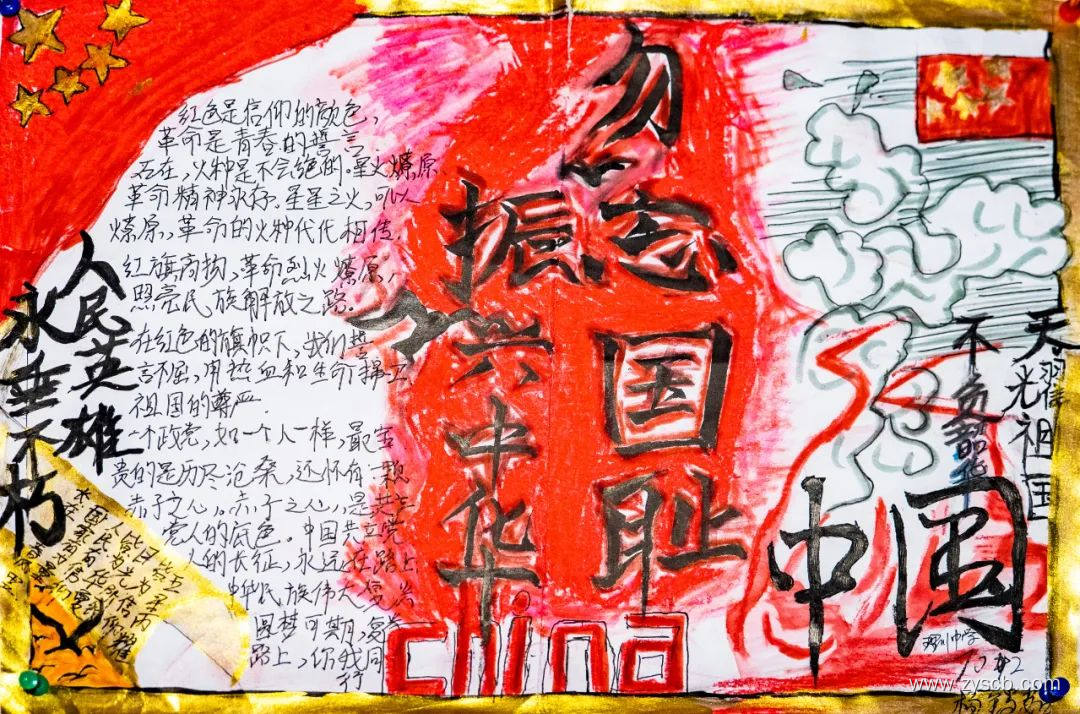 红色是信仰的颜色，
革命是青春的誓言
石在，火种是不会绝的。星火燎原
革命精神永存。星星之火，可以
燎原，革命的火种代代相传.
红旗高扬，革命烈火燎原，
照亮民族解放之路.
在红色的旗帜下，我们誓
言不屈，用热血和生命捍卫
祖国的尊严.
一个政党，如一个人一样，最宝
贵的是历尽沧桑，还怀有一颗
赤子之心。赤子之心，是共产
党人的底色。中国共产党
人的长征，永远在路上
中华民族伟大复兴
圆梦可期，复兴
路上，你我同
行
人民英雄
永垂不朽
勿忘国耻
振兴中华
China
天羽信
光祖国
不负韶华
中国
www.zyscb.com